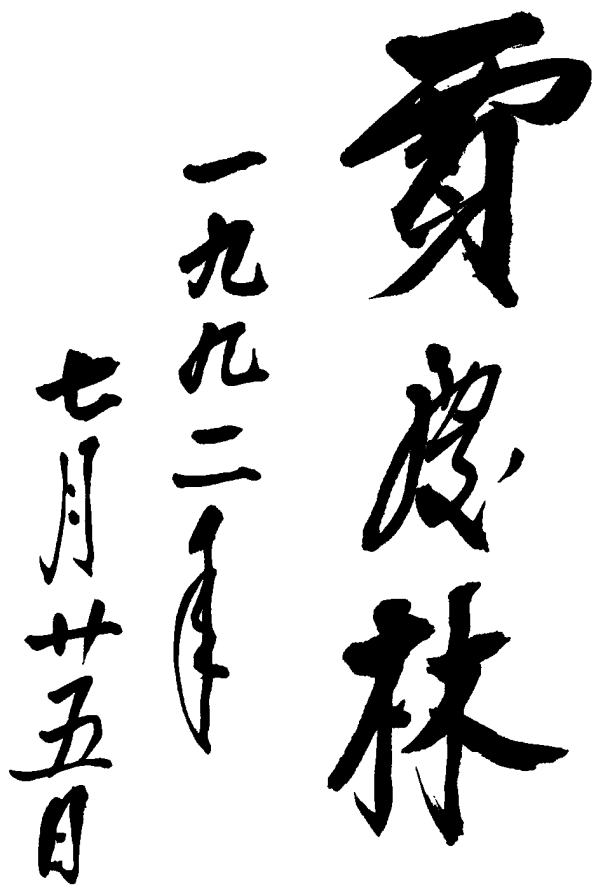 贾庆林
一九九二年
七月廿五日